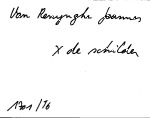 Van Renynghe Joannes
x de schilder
1701/16